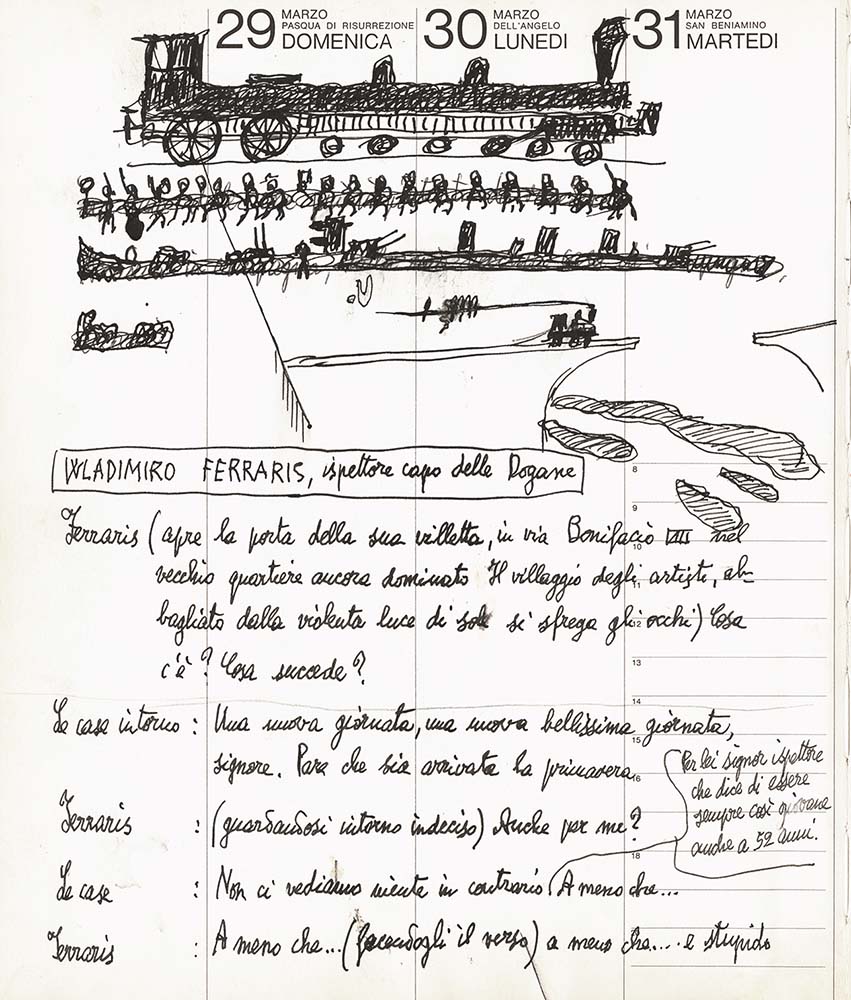 29 MARZO
PASQUA DI RISURREZIONE
DOMENICA
30 MARZO
DELL'ANGELO
LUNEDI
31 MARZO
SAN BENIAMINO
MARTEDI
WLADIMIRO FERRARIS, ispettore capo delle Dogane
8
9
Ferraris (apre la porta della sua villetta, in via Bonifacio VIII nel
10
vecchio quartiere ancora dominato Il villaggio degli artisti, ab-
11
bagliato dalla violenta luce di sole si sfrega gli occhi) Cosa
12
c'è? Cosa succede?
13
14
Le case intorno : Una nuova giornata, una nuova bellissima giornata,
15
signore. Pare che sia arrivata la primavera
16
Per lei signor ispettore
che dice di essere
sempre così giovane
anche a 52 anni.
Ferraris : (guardandosi intorno indeciso) Anche per me?
18
Le case : Non ci vediamo niente in contrario. A meno che...
Ferraris : A meno che... (facendogli il verso) a meno che.... e stupido